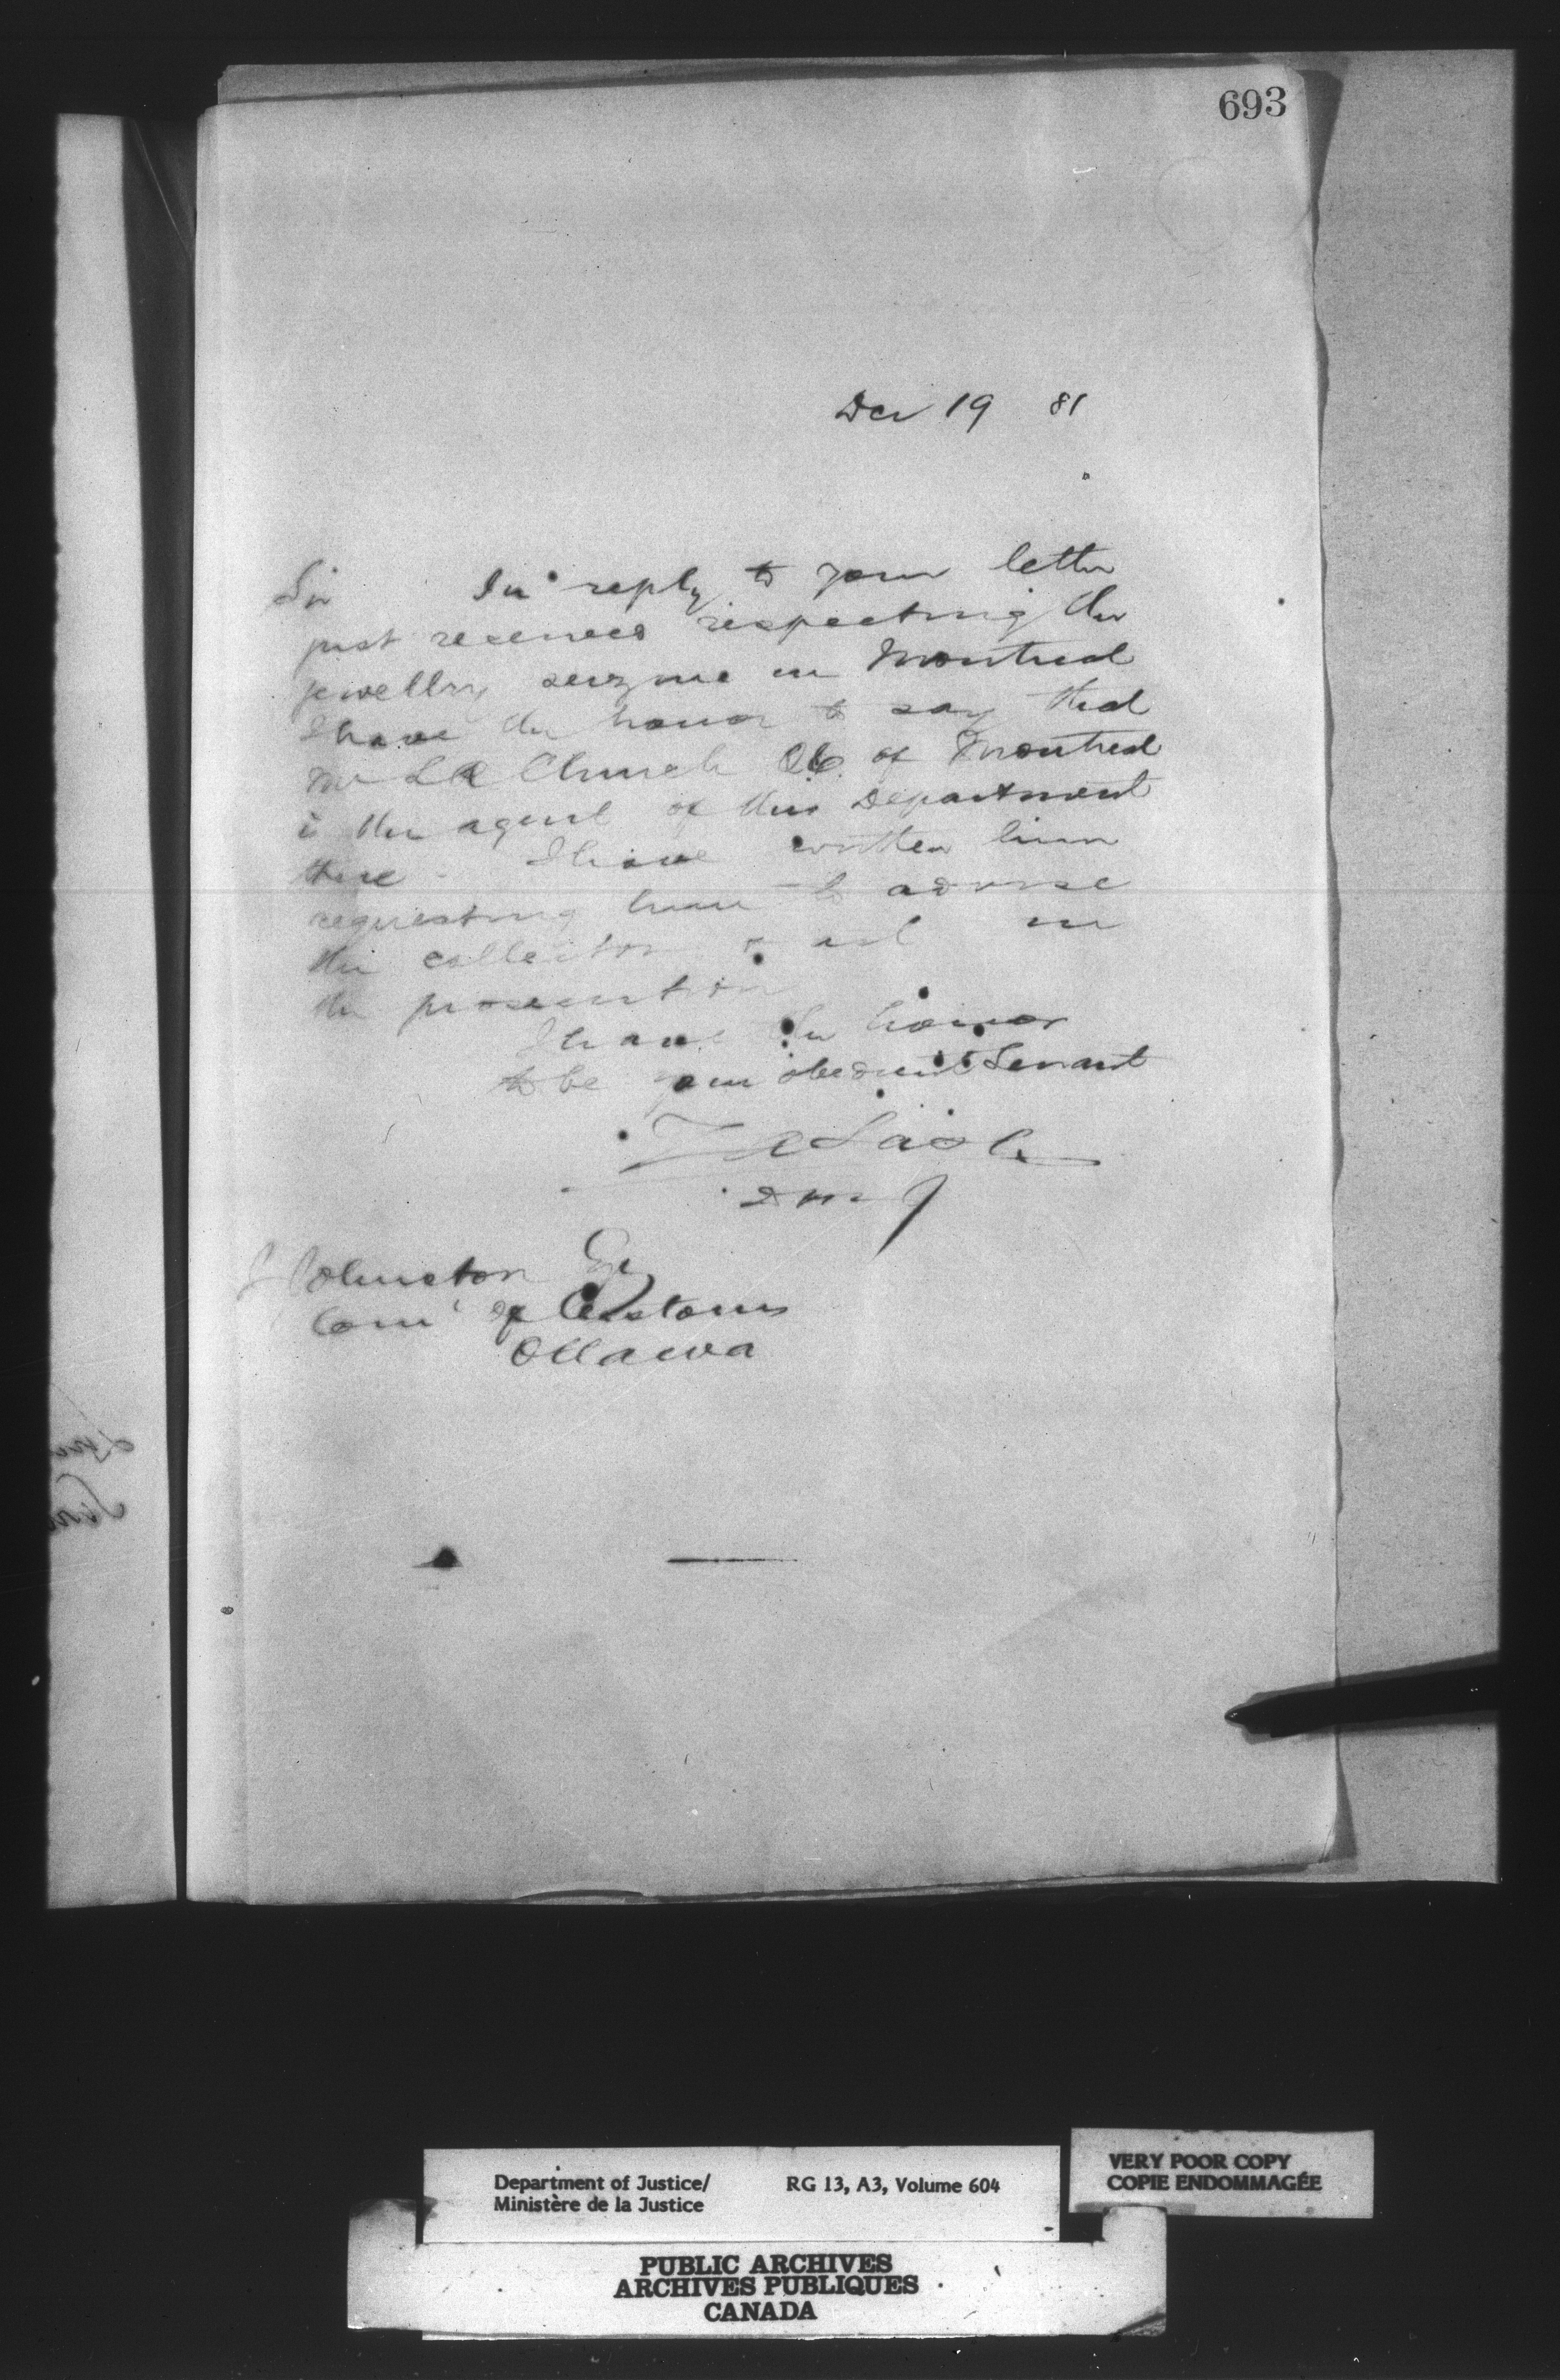 693
Dec 19 81
Sir In reply to your letter
just received respecting the
jewellry seizure in Montreal
I have the honor to say that
Mr L R Church QC of Montreal
is the agent of this Department
there - I have written him
requesting him to advise
the collector & act in
the prosecution
I have the honor
to be your obedient Servant
Z A Lash
DMJ
J Johnston Esq
Com of Customs
Ottawa
Department of Justice/
Ministère de la Justice
RG 13, A3, Volume 604
VERY POOR COPY
COPIE ENDOMMAGÉE
PUBLIC ARCHIVES
ARCHIVES PUBLIQUES
CANADA